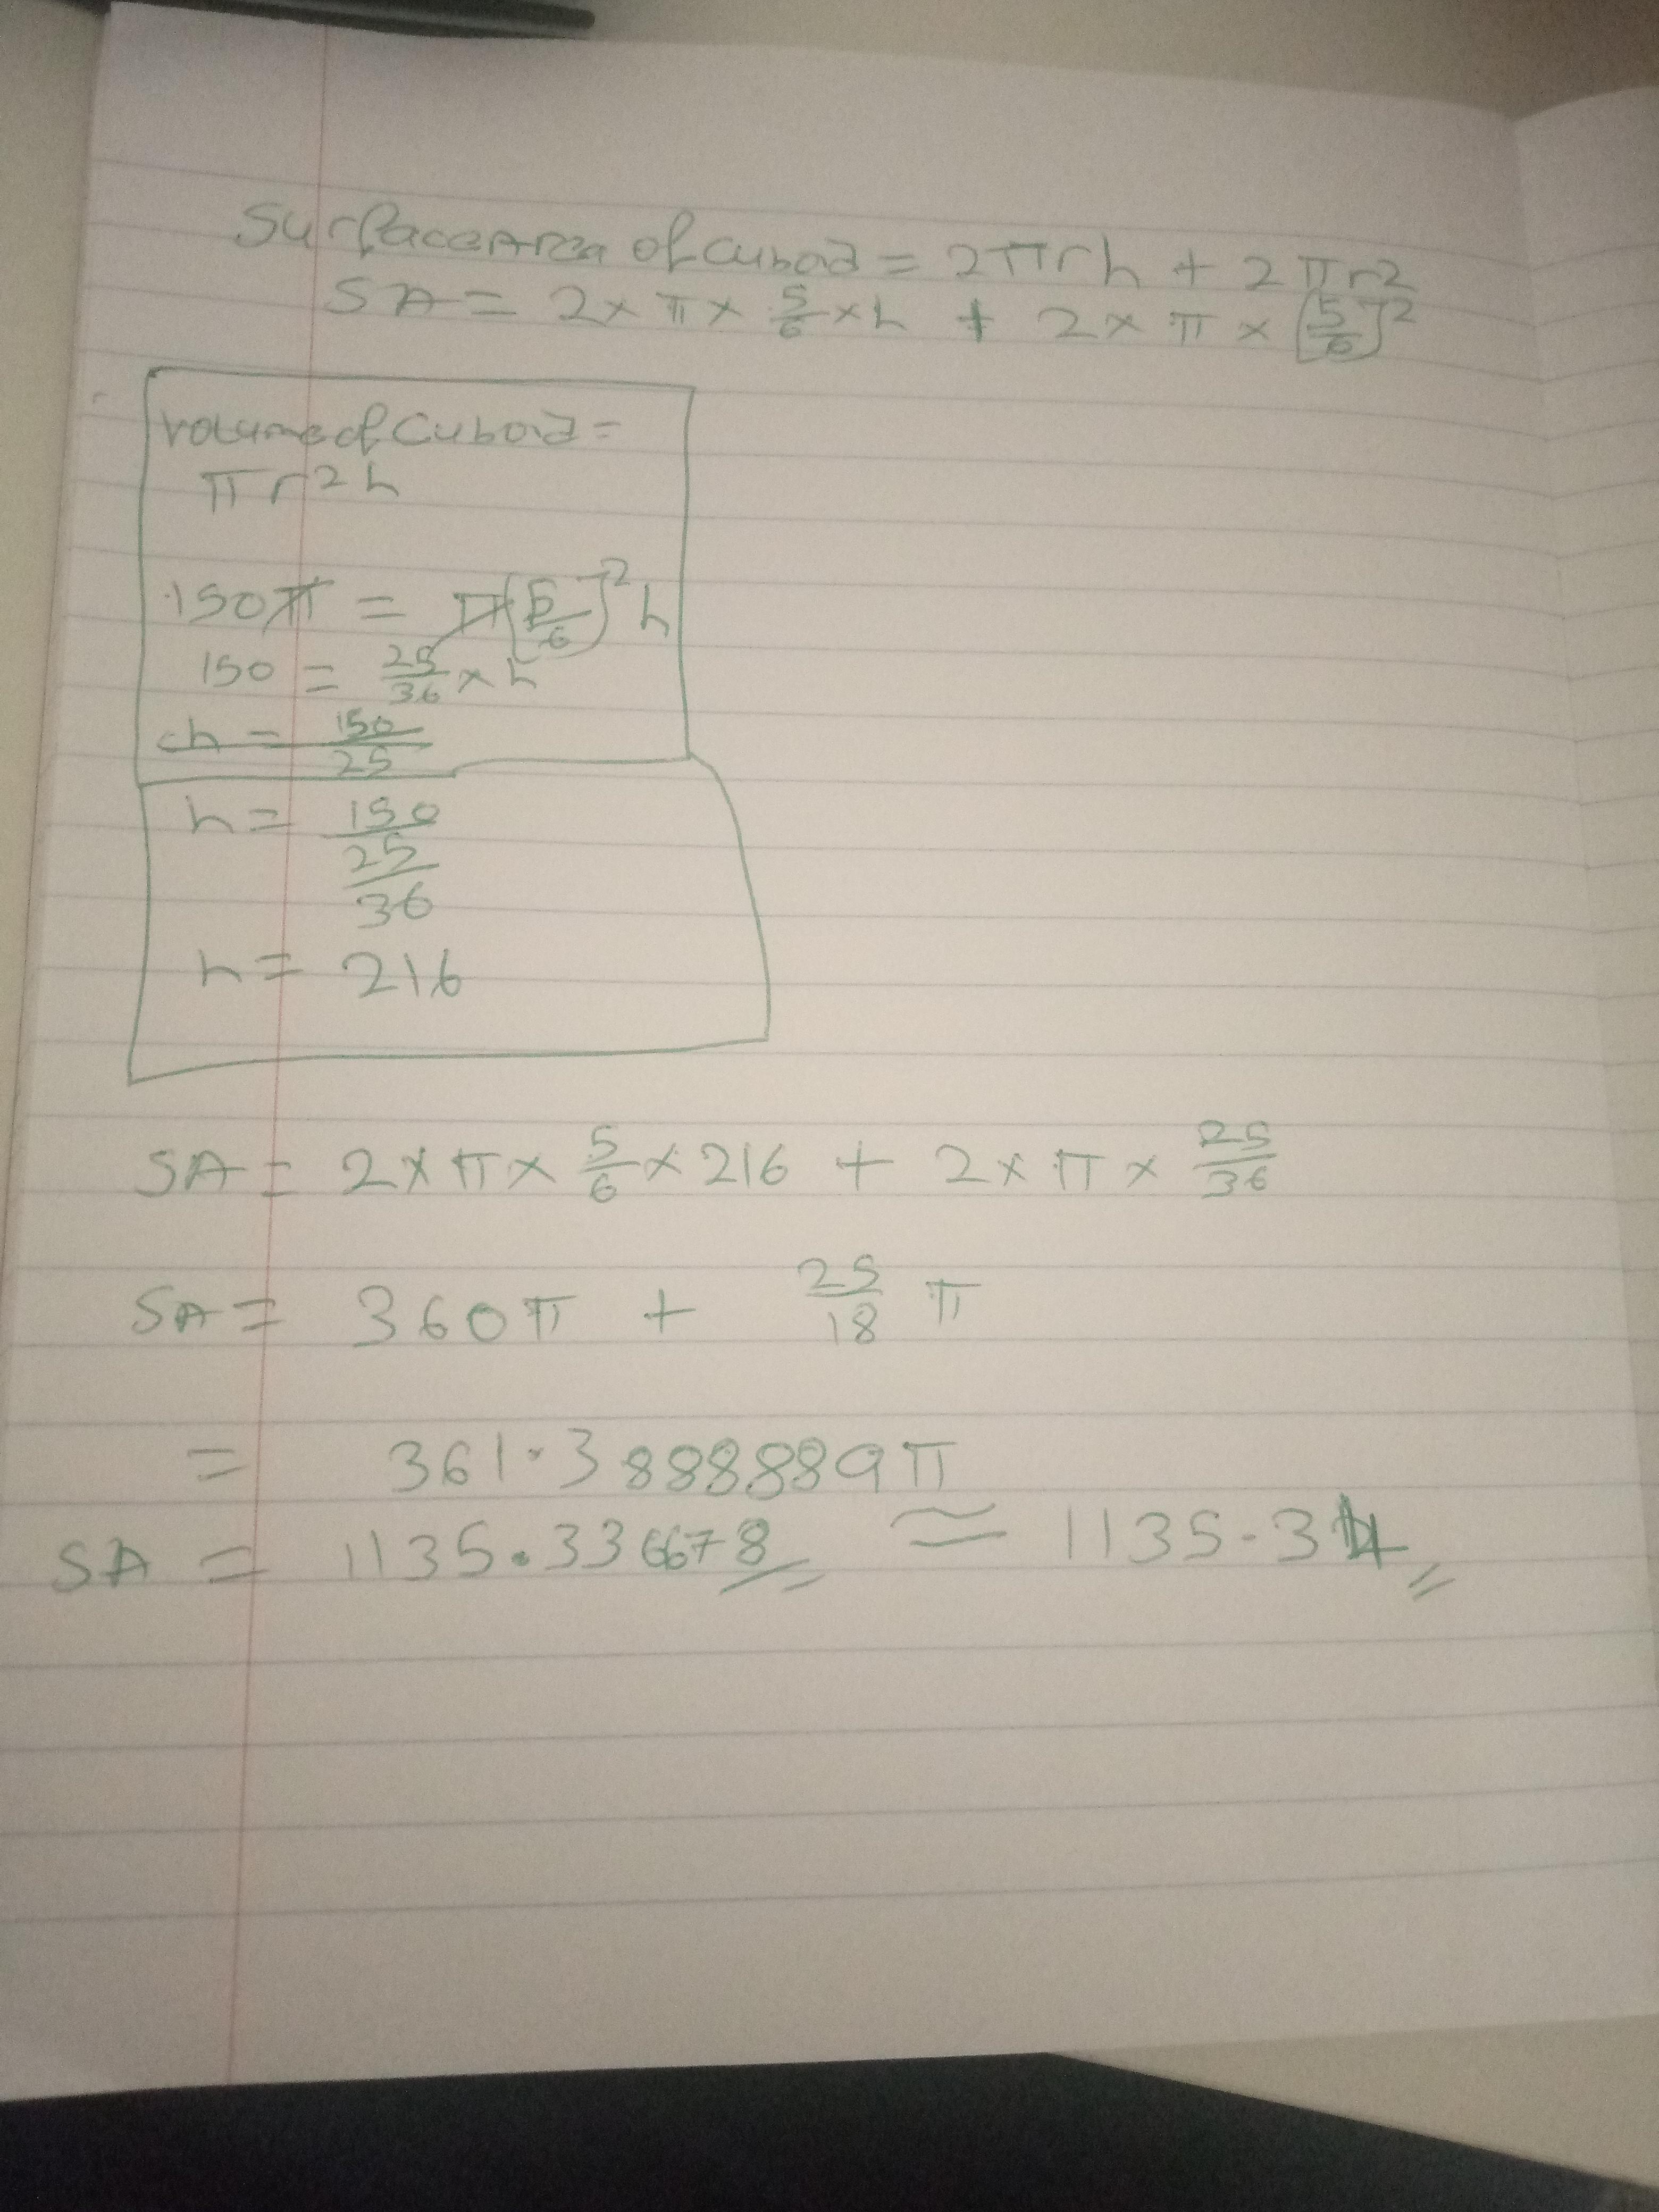 Surface Area of Cuboid = 2πrh + 2πr²
SA = 2 × π × 5/6 × h + 2 × π × (5/6)²
Volume of Cuboid =
πr²h
150π = π(5/6)²h
150 = 25/36 × h
h = 150/25
h = 150/25/36
h = 216
SA = 2 × π × 5/6 × 216 + 2 × π × 25/36
SA = 360π + 25/18 π
= 361.3888889π
SA = 1135.336678 ≈ 1135.34